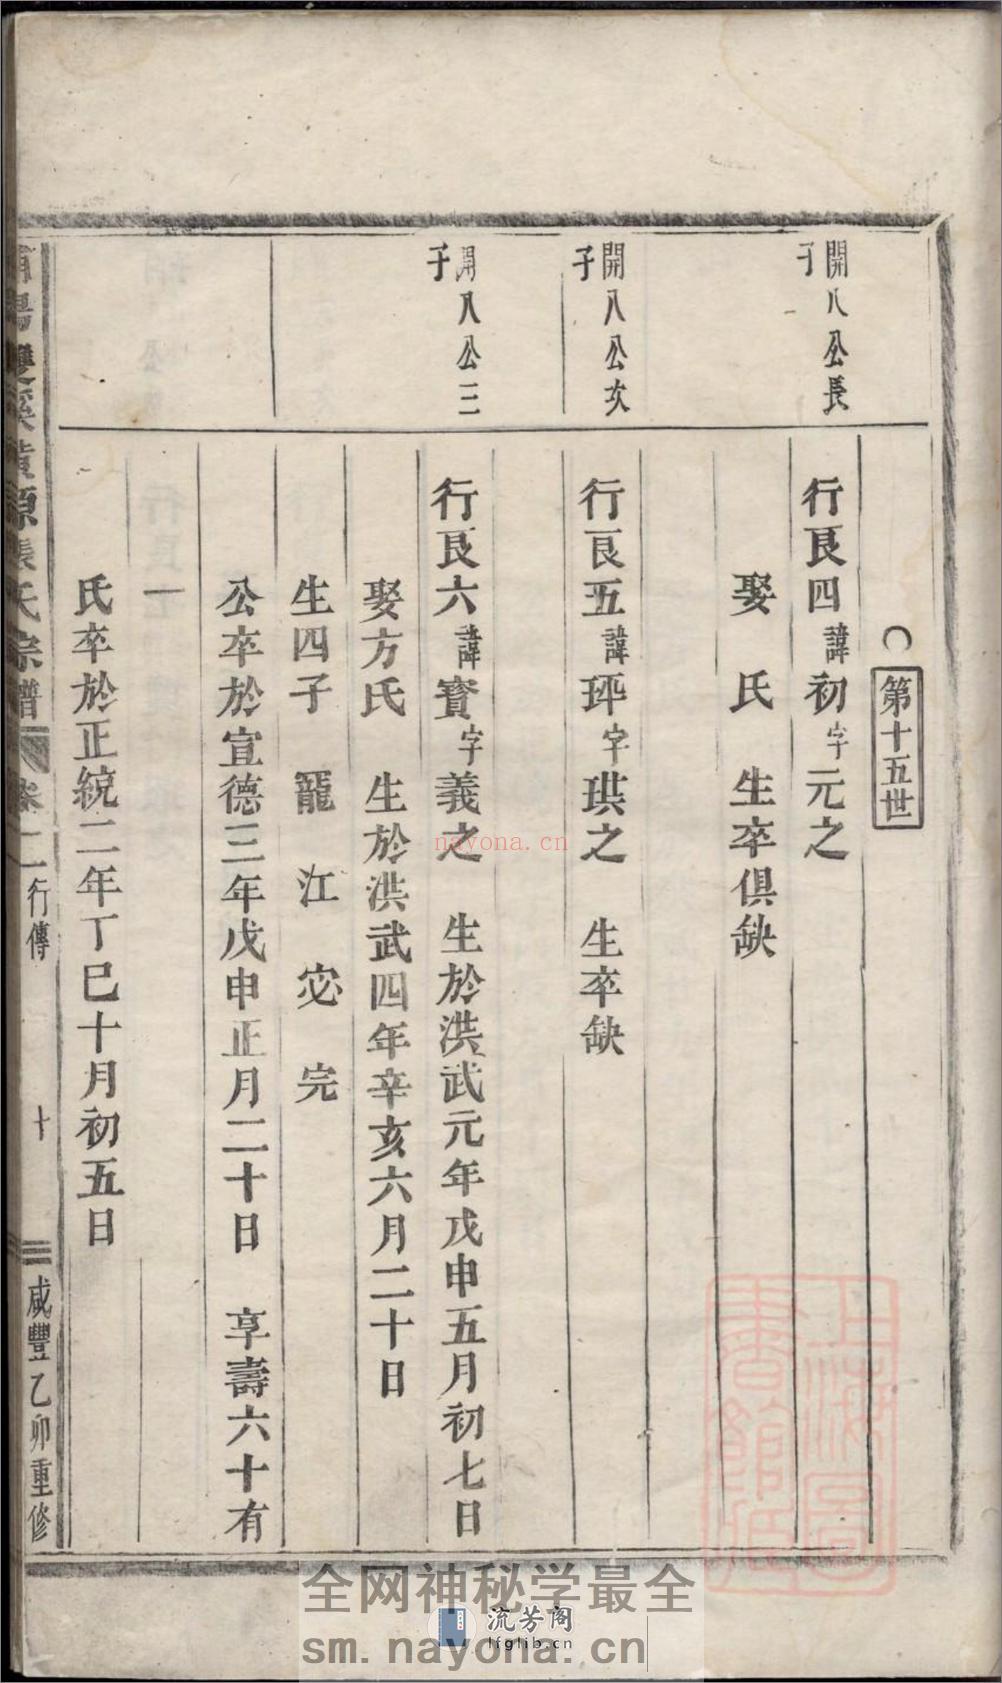 第十五世
開八公長
子
行艮四諱初字元之
娶 氏 生卒俱缺
開八公次
子
行艮五諱玶字珙之 生卒缺
開八公三
子
行艮六諱寳字義之 生於洪武元年戊申五月初七日
娶方氏 生於洪武四年辛亥六月二十日
生四子 寵 江 宓 完
公卒於宣德三年戊申正月二十日 享壽六十有
一
氏卒於正統二年丁巳十月初五日
雙溪黄源張氏宗譜 卷一 行傳 十 咸豐乙卯重修
上海圖書館藏
nayona.cn
全网神秘学最全
流芳阁
lfglib.cn
sm.nayona.cn